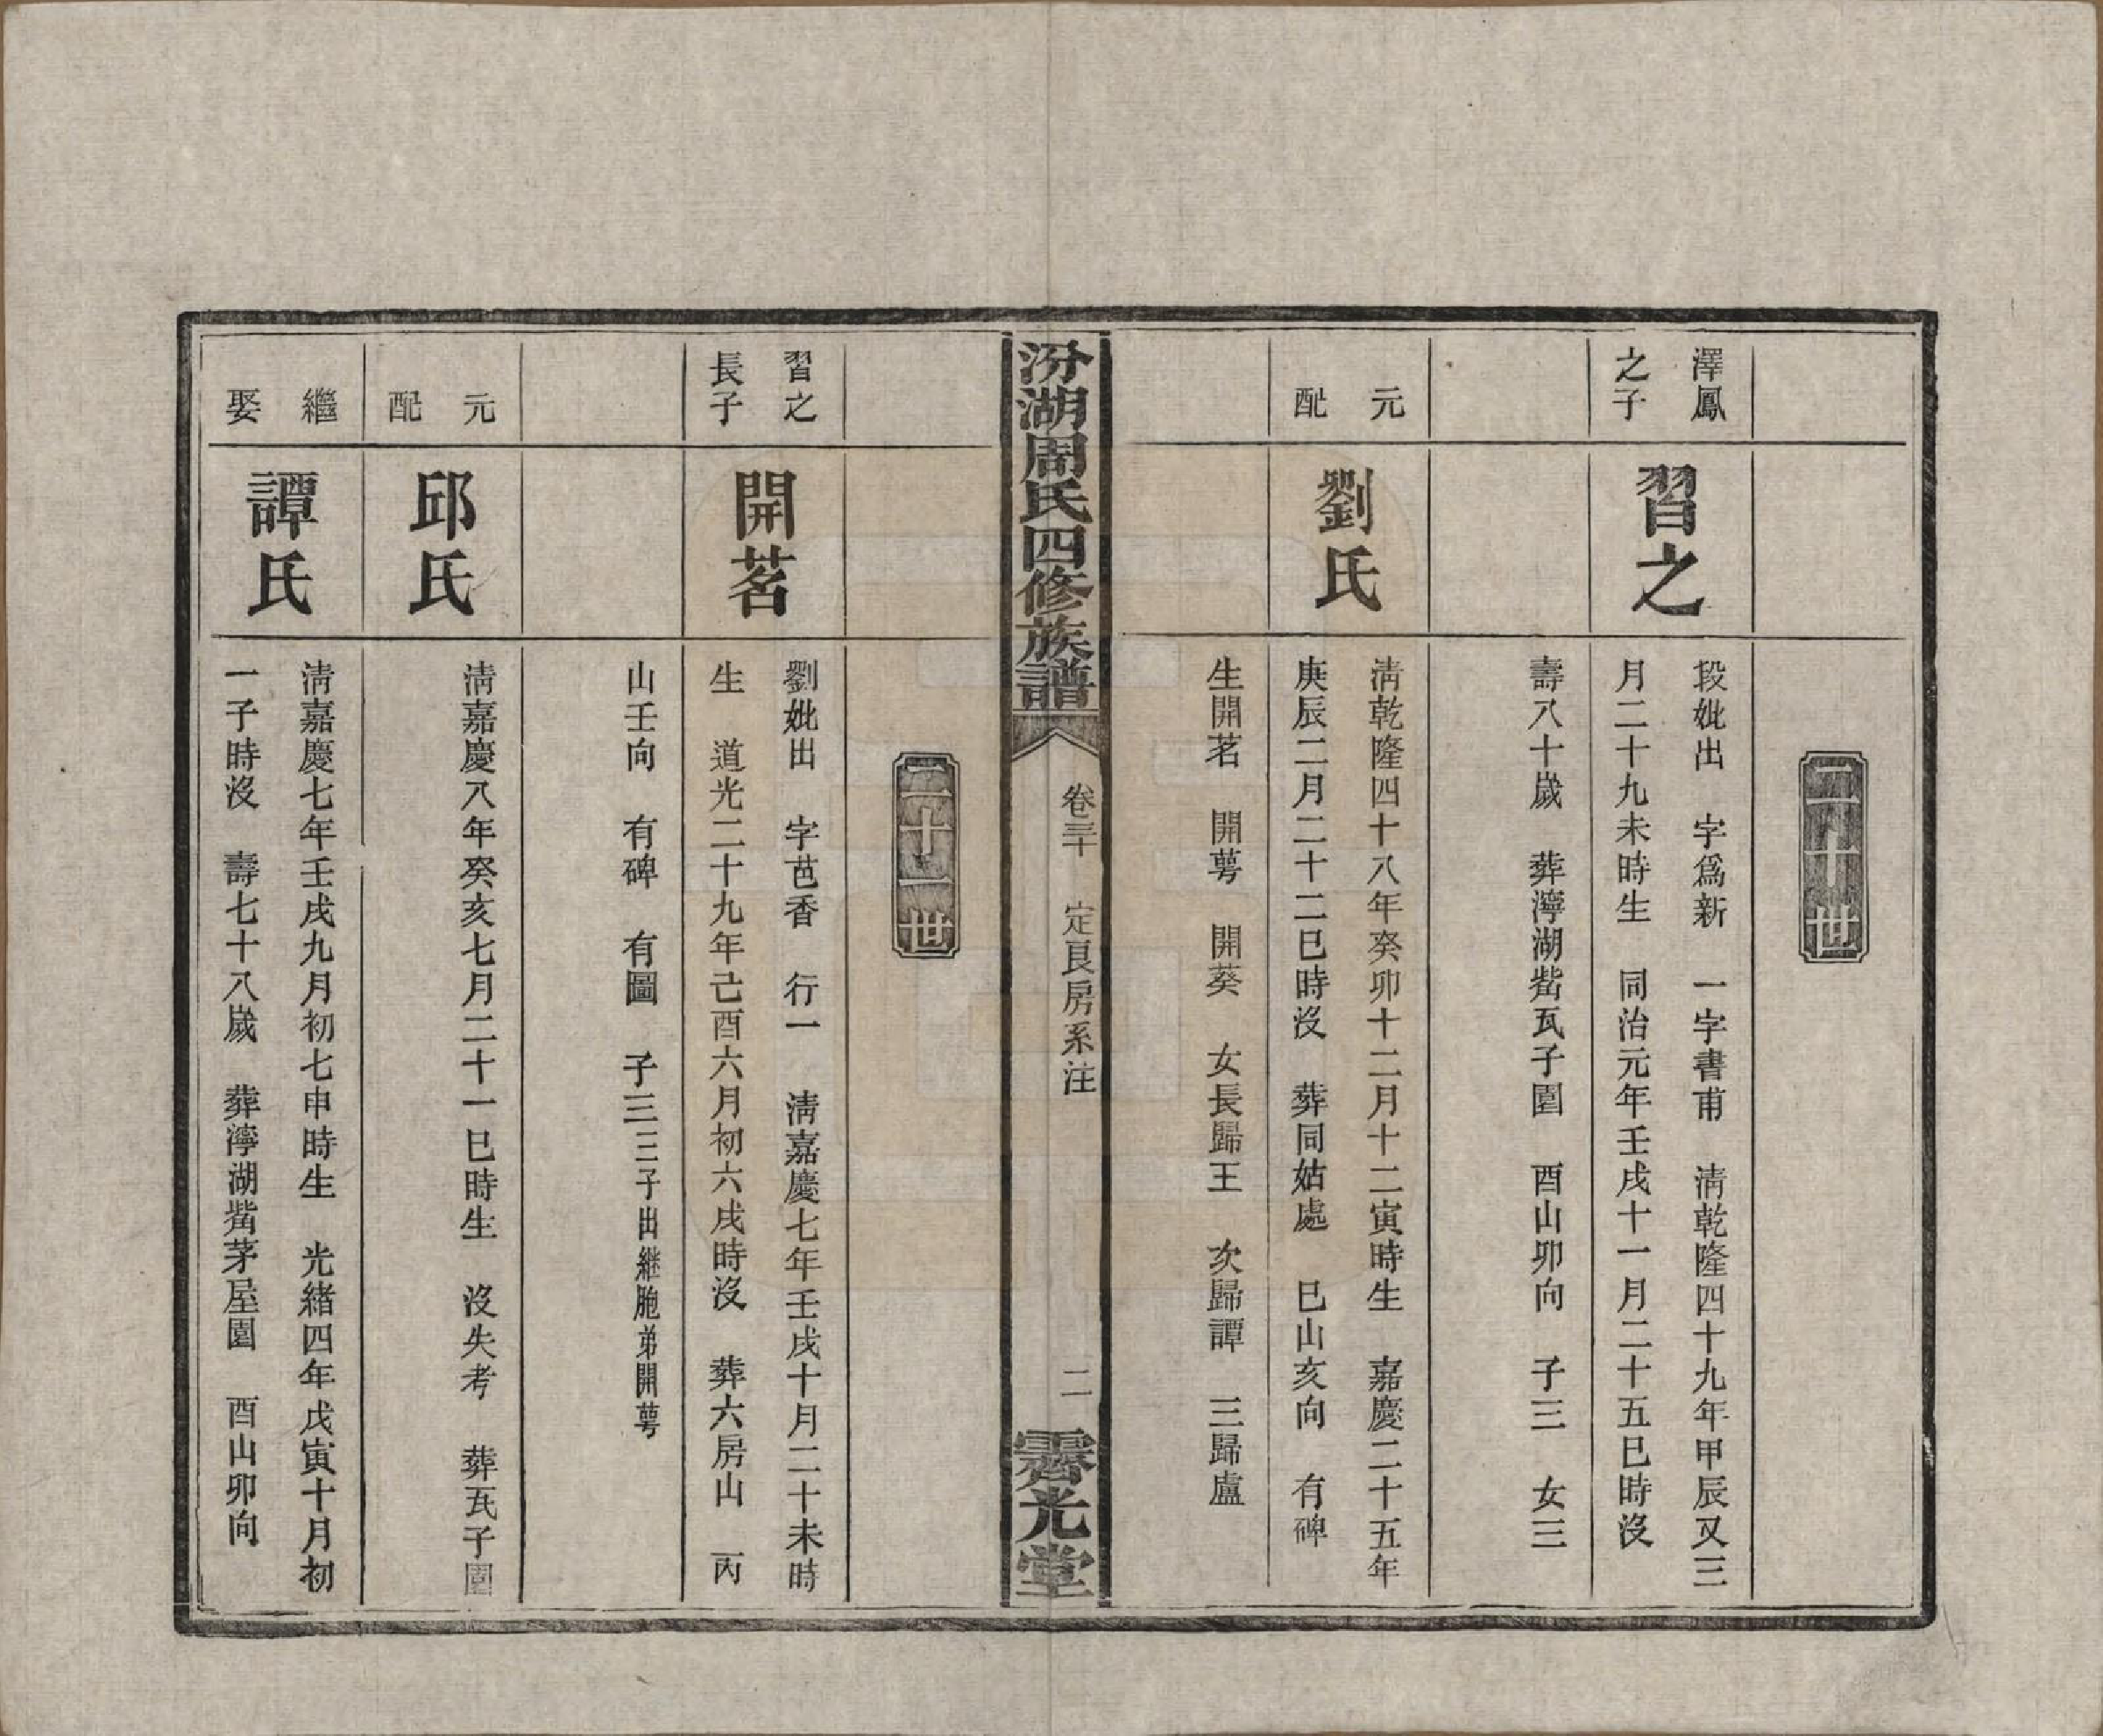 二十世
澤鳳之子
習之
段妣出　字為新　一字書甫　淸乾隆四十九年甲辰又三
月二十九未時生　同治元年壬戌十一月二十五巳時沒
壽八十歲　葬濘湖觜瓦子園　酉山卯向　子三　女三
元配
劉氏
淸乾隆四十八年癸卯十二月十二寅時生　嘉慶二十五年
庚辰二月二十二巳時沒　葬同姑處　巳山亥向　有碑
生開茗　開萼　開葵　女長歸王　次歸譚　三歸盧
汾湖周氏四修族譜
卷三十　定良房系注
二
霽光堂
二十一世
習之長子
開茗
劉妣出　字芭香　行一　淸嘉慶七年壬戌十月二十未時
生　道光二十九年己酉六月初六戌時沒　葬六房山　丙
山壬向　有碑　有圖　子三三子出継胞弟開萼
元配
邱氏
淸嘉慶八年癸亥七月二十一巳時生　沒失考　葬瓦子園
繼娶
譚氏
淸嘉慶七年壬戌九月初七申時生　光緒四年戊寅十月初
一子時沒　壽七十八歲　葬濘湖觜茅屋園　酉山卯向